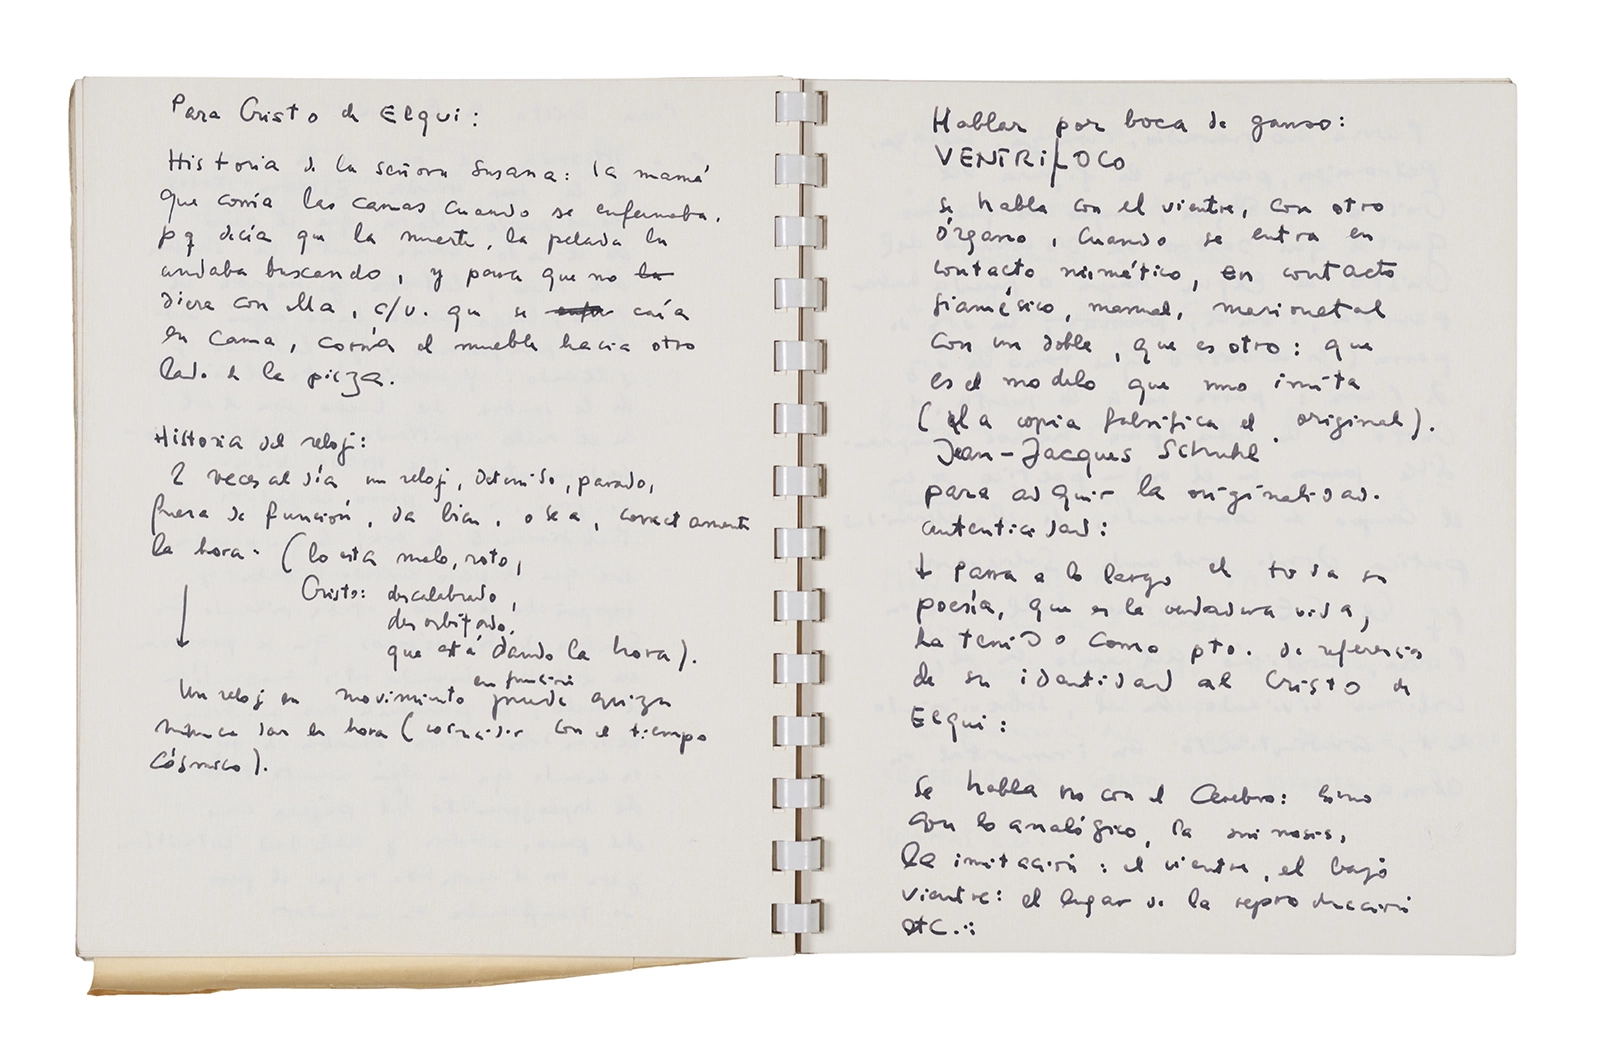 Para Cristo de Elqui:
Historia de la señora Susana: la mamá
que corría las camas cuando se enfermaba,
pq decía que la muerte, la pelada la
andaba buscando, y para que no la
diera con ella, c/v. que se caía
en cama, corría el mueble hacia otro
lado de la pieza.
Historia del reloj:
2 veces al día un reloj, detenido, parado,
fuera de función, da bien, o sea, correctamente
la hora. (lo esta malo, roto,
Cristo: descalabrado,
desorbitado,
que está dando la hora).
en función
Un reloj en movimiento puede quiza
nunca dar la hora (coincidir con el tiempo
cósmico).
Hablar por boca de ganso:
VENTRILOCO
se habla con el vientre, con otro
órgano, cuando se entra en
contacto mimético, en contacto
siamésico, manual, marionetal
con un doble, que es otro: que
es el modelo que uno imita
(la copia falsifica el original).
Jean-Jacques Schuhl
para adquir la originalidad.
autenticidad:
↓ Parra a lo largo de toda su
poesía, que es la verdadera vida,
ha tenido como pto. de referencia
de su identidad al Cristo de
Elqui:
se habla no con el cerebro: sino
con lo analógico, la mimosis,
la imitación: el vientre, el bajo
vientre: el lugar de la reproducción
etc.: